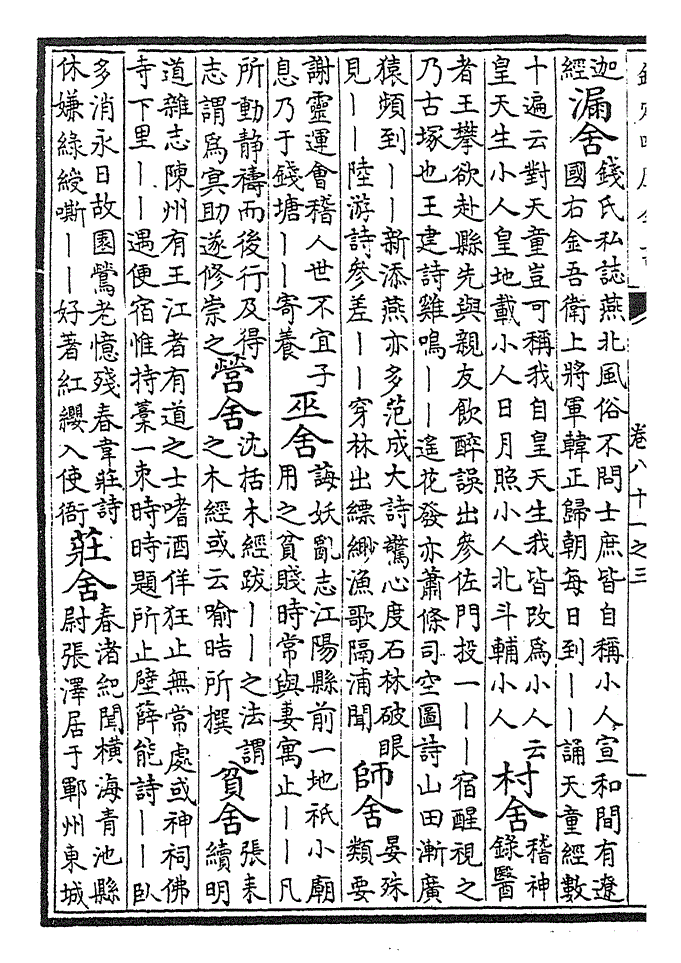 卷八十一之三
迦
經
漏舍
錢氏私誌燕北風俗不問士庶皆自稱小人宣和間有遼
國右金吾衛上將軍韓正歸朝每日到丨丨誦天童經數
十遍云對天童豈可稱我自皇天生我皆改為小人云
皇天生小人皇地載小人日月照小人北斗輔小人
村舍
稽神
錄醫
者王攀欲赴縣先與親友飲醉誤出參佐門投一丨丨宿醒視之
乃古塚也王建詩雞鳴丨丨遙花發亦蕭條司空圖詩山田漸廣
猿頻到丨丨新添燕亦多范成大詩驚心度石林破眼
見丨丨陸游詩參差丨丨穿林出縹緲漁歌隔浦聞
師舍
晏殊
類要
謝靈運會稽人世不宜子
息乃于錢塘丨丨寄養
巫舍
誨妖亂志江陽縣前一地祇小廟
用之貧賤時常與妻寓止丨丨凡
所動静禱而後行及得
志謂為冥助遂修崇之
營舍
沈括木經跋丨丨之法謂
之木經或云喻晧所撰
貧舍
張耒
續明
道雜志陳州有王江者有道之士嗜酒佯狂止無常處或神祠佛
寺下里丨丨遇便宿惟持藁一束時時題所止壁薛能詩丨丨臥
多消永日故園鶯老憶殘春韋莊詩
休嫌綠綬嘶丨丨好著紅纓入使衙
莊舍
春渚紀聞橫海青池縣
尉張澤居于鄆州東城